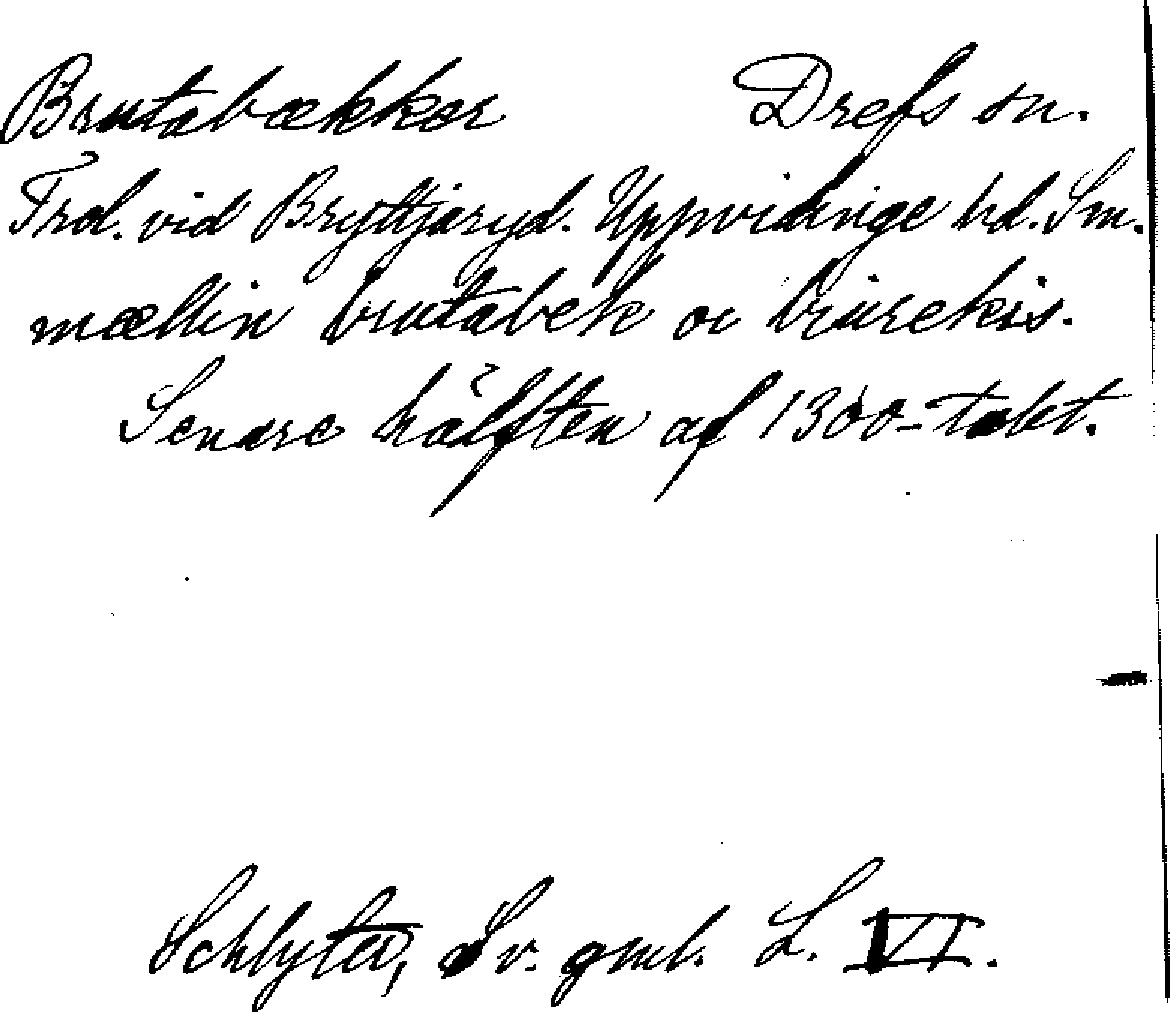 Brutabækker Drefs sn.
Trol. vid Bryttjaryd. Uppvidinge hd. Sm.
mællin brutabek oc biurekis.
Senare hälften af 1300-talet.
Schlyter, Sv. gml. L. VI.